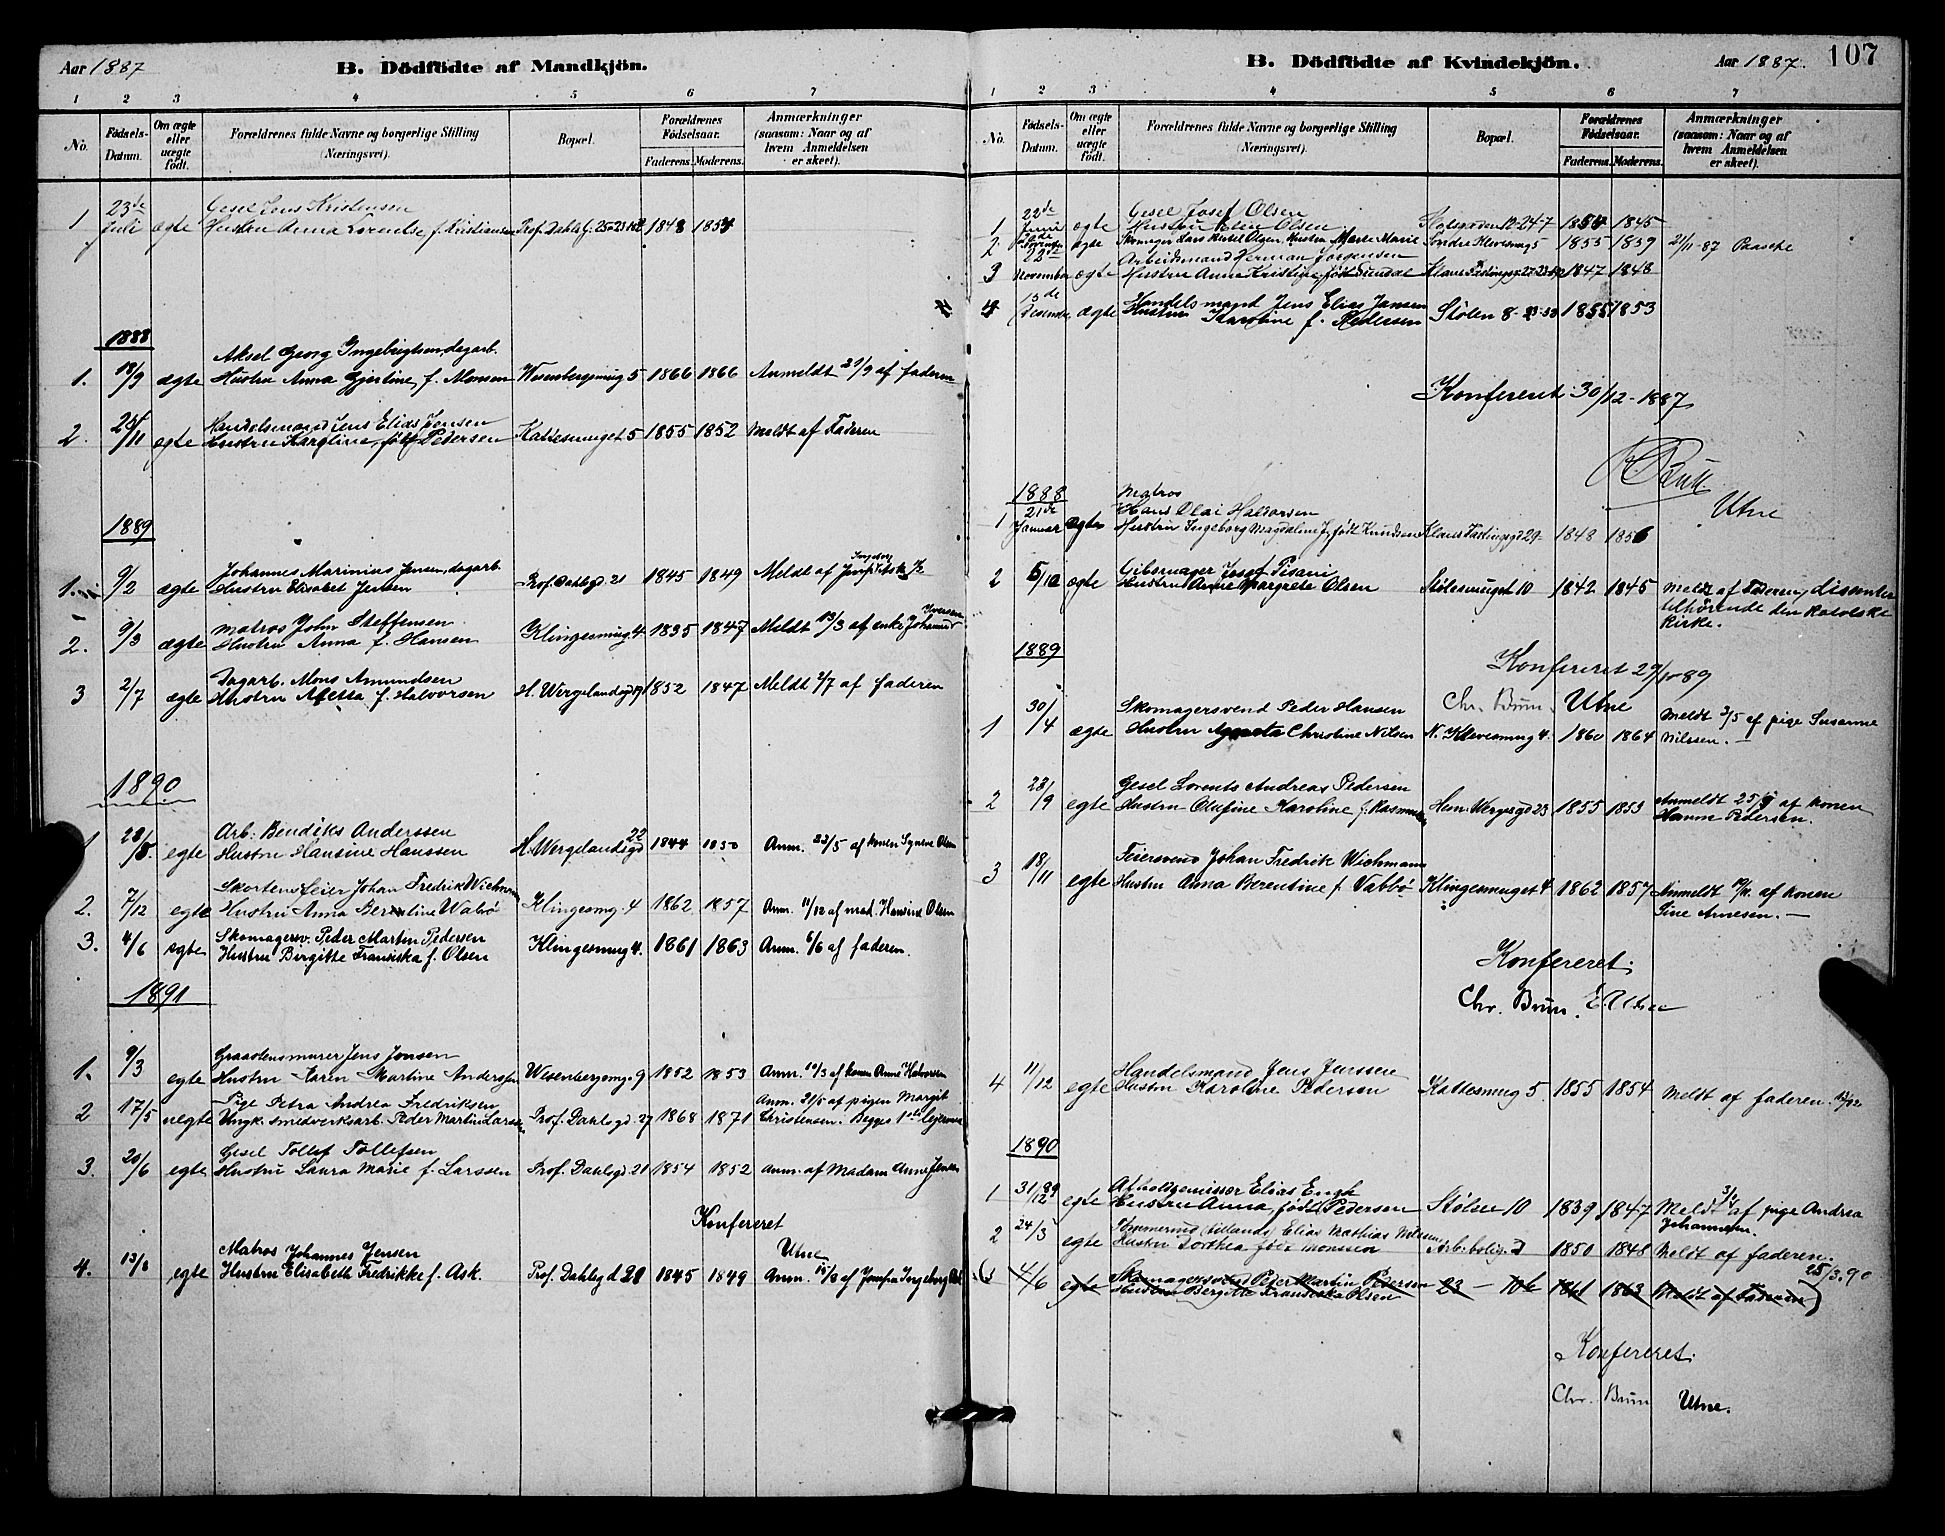 Aar 1887
B. Dödfödte af Mandkjön.
1 2 3 4 5 6 7
No. Födsels-Datum. Om ægte eller uægte födt. Forældrenes fulde Navne og borgerlige Stilling (Næringsvei). Bopæl. Forældrenes Födselsaar. Faderens. Moderens. Anmærkninger (saasom: Naar og af hvem Anmeldelsen er skeet).
23de Gesel Jens Kristensen
1 Juli ægte Hustru Anna f. Kristiansen Prof. Dahls g. 1848
1888
Aksel Georg Ingebrigtsen, dagarb.
1. 18/9 ægte Hustru Anna Gjertine f. Monsen Wesenbergsmug 5 1866 1866 Anmeldt 21/9 af faderen
Handelsmand Jens Elias Jensen
2. /11 ægte Hustru Karoline, født Pedersen Kattesmuget 5 1855 1852 Meldt af Faderen
1889
Johannes Marinius Jensen, dagarb.
1. 9/2 ægte Hustru Elisabet Jensen Prof. Dahlsgd. 21 1845 1849 Meldt af Jomf
Matros John Steffensen
2. 9/3 ægte Hustru Anna f. Hansen Klingesmug 4 1835 1847 Meldt 13/3 af enke Johanne Iversen
Dagarb. Mons Amundsen
3 2/7 ægte Hustru Aletta f. Halvorsen H. Wergelandsgd 19 1852 1847 Meldt 2/7 af faderen
1890
Arb. Bendiks Anderssen
1 /5. egte Hustru Hansine Hanssen H. Wergelandsgd 22 1844 1850 Anm. 23/5 af konen Synøve Olsen
Skorstensfeier Johan Fredrik Wichmann
2. 7/12 egte Hustru Anna Berentine Wabö Klingesmg. 4 1862 1857 Anm. 11/12 af mad. Hansine Olsen
3. 4/6 egte Skomagersv. Peder Martin Pedersen
Hustru Birgitte Fransiska f. Olsen Klingesmug 4. 1861 1863 Anm. 6/6 af faderen.
1891
9/3 Graastensmurer Jens Jonsen
1. egte Hustru Karen Martine Anderssen Wesenbergsmg. 9 1852 1853 Anm. 10/3 af konen Anne Halvorsen
17/5 Pige Petra Andrea Fredriksen Anm. 21/5 af pigen Margit
2 uegte Ungk. smedverksarb. Peder Martin Larssen Prof. Dahlsgd. 27 1868 1871 Christensen. Begges 1ste leiermaal
20/6 Gesel Tollef Tollefsen
3. egte Hustru Laura Marie f. Larssen Prof. Dahlsgd 21 1854 1852 Anm. af Madam Anne Jensen
Konfereret
Utne
13/8 Matros Johannes Jensen
4. egte Hustru Elisabeth Fredrikke f. Ask. Prof. Dahlsgd 21 1845 1849 Anm. 15/8 af Jomfru Ingeborg Ask
B. Dödfödte af Kvindekjön.
Aar 1887.
107
1 2 3 4 5 6 7
No. Födsels-Datum. Om ægte eller uægte födt. Forældrenes fulde Navne og borgerlige Stilling (Næringsvei). Bopæl. Forældrenes Födselsaar. Faderens. Moderens. Anmærkninger (saasom: Naar og af hvem Anmeldelsen er skeet).
22de Gesel Josef Olsen
1 Juni ægte Hustru Elen Olsen 12-24-7 1845
2 ægte Skomager Lars Olsen, Hustru Marte Marie Søndre Klevesmug 5 1855 1839 21/11-87 Paasche
22de Arbeidsmand Herman Jörgensen
3 November ægte Hustru Anna Kristine, født 1847 1848
15de Handelsmand Jens Elias Jansen
4 Desember ægte Hustru Karoline f. Pedersen Stølen 8-23-53 1855 1853
Konfereret 30/12-1887
Utne
1888 Matros
21de Hans Olai Halvorsen
1 Januar ægte Hustru Ingeborg Magdaline J. født Knudsen Klaus Fastingsgd 29 1848 1856
Gibsmager Josef Pisani
2 5/12 ægte Hustru Anne Margrete Olsen Stølesmuget 10 1842 1845 Meldt af Faderen, dissenter
tilhörende den katolske
kirke.
1889
Konfereret 29/10 89
Chr. Brun. Utne
30/4 Skomagersvend Peder Hansen Meldt 3/5 af pige Susanne
1 ægte Hustru Agneta Christine Nilsen N. Klevesmug 4. 1860 1864 Nilssen.
23/9 Gesel Lorents Andreas Pedersen
2 egte Hustru Olufine Karoline f. Rasmussen Hen. Wergsgd 23 1855 1853 Anmeldt 25/9 af konen
Hanne Pedersen.
18/11 Feiersvend Johan Fredrik Wichmann
3 egte Hustru Anna Berentine f. Vabbö Klingesmuget 4 1862 1857 Anmeldt 19/11 af konen
Sine Arnesen.
Konfereret.
Chr. Brun. E. Utne
11/12 Handelsmand Jens Jenssen
4 egte Hustru Karoline Pedersen Kattesmug 5 1855 1854 Meldt af faderen.
1890
31/12 89 Elias Engh
1 egte Hustru Anna, født Pedersen Stølen 10 1839 1847 Meldt af pige Andrea
Johannesen.
24/3 Elias Mathias Nilsen
2 egte Hustru Dorthea født Monssen Arb. bolig. 1850 1848 Meldt af faderen.
25/3.90
4/6 egte Skomagersvend Peder Martin Pedersen
Hustru Bergitte Fransiska Olsen 23 1861 1863 Meldt af Faderen
Konfereret.
Chr. Brun Utne.